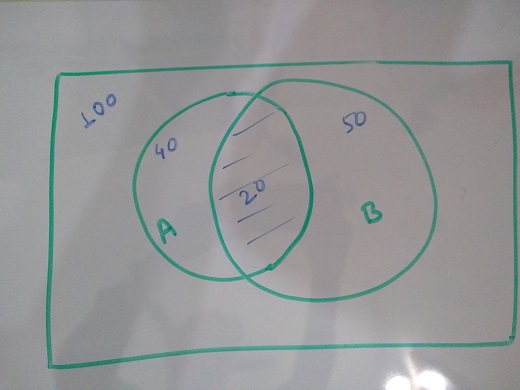 100
40
50
20
A
B